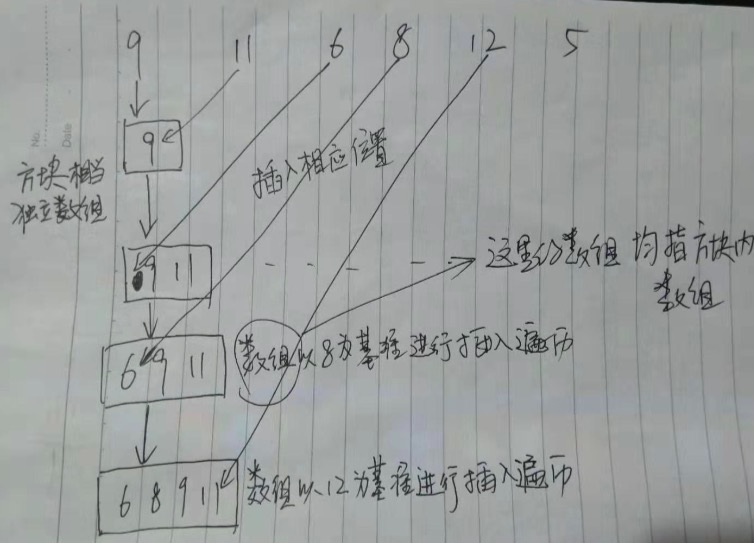 No.
Date
9 11 6 8 12 5
9
方块相当
独立数组
插入相应位置
9 11
这里的数组均指方块内
数组
6 9 11
数组以8为基准进行插入遍历
6 8 9 11
数组以12为基准进行插入遍历